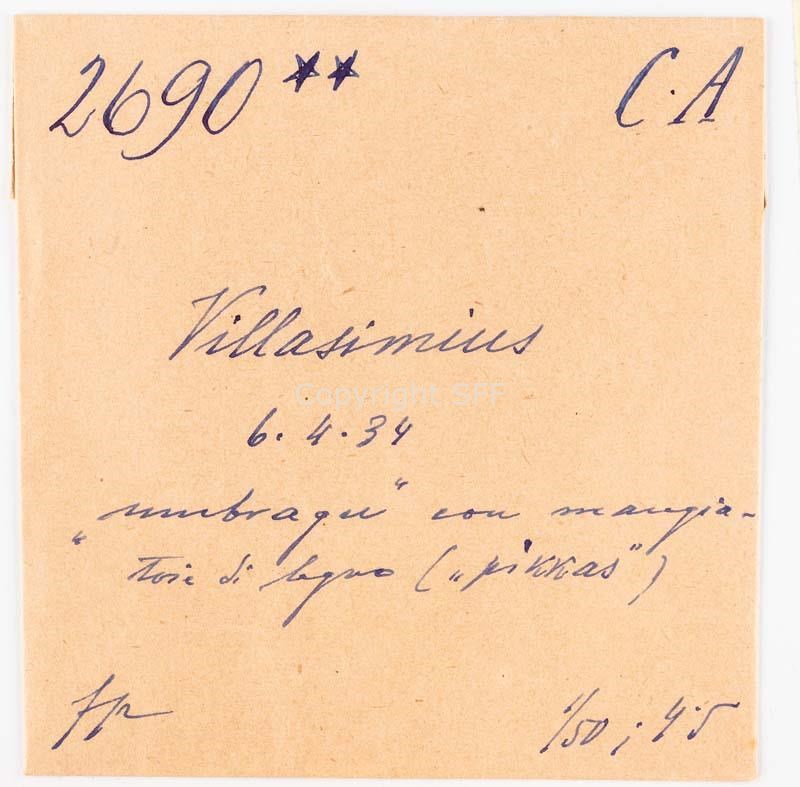 2690 ** C. A
Villasimius
Copyright SFF
6. 4. 34
„umbragu“ con mangia-
toie di legno („pikkas“)
1/50 ; 4.5